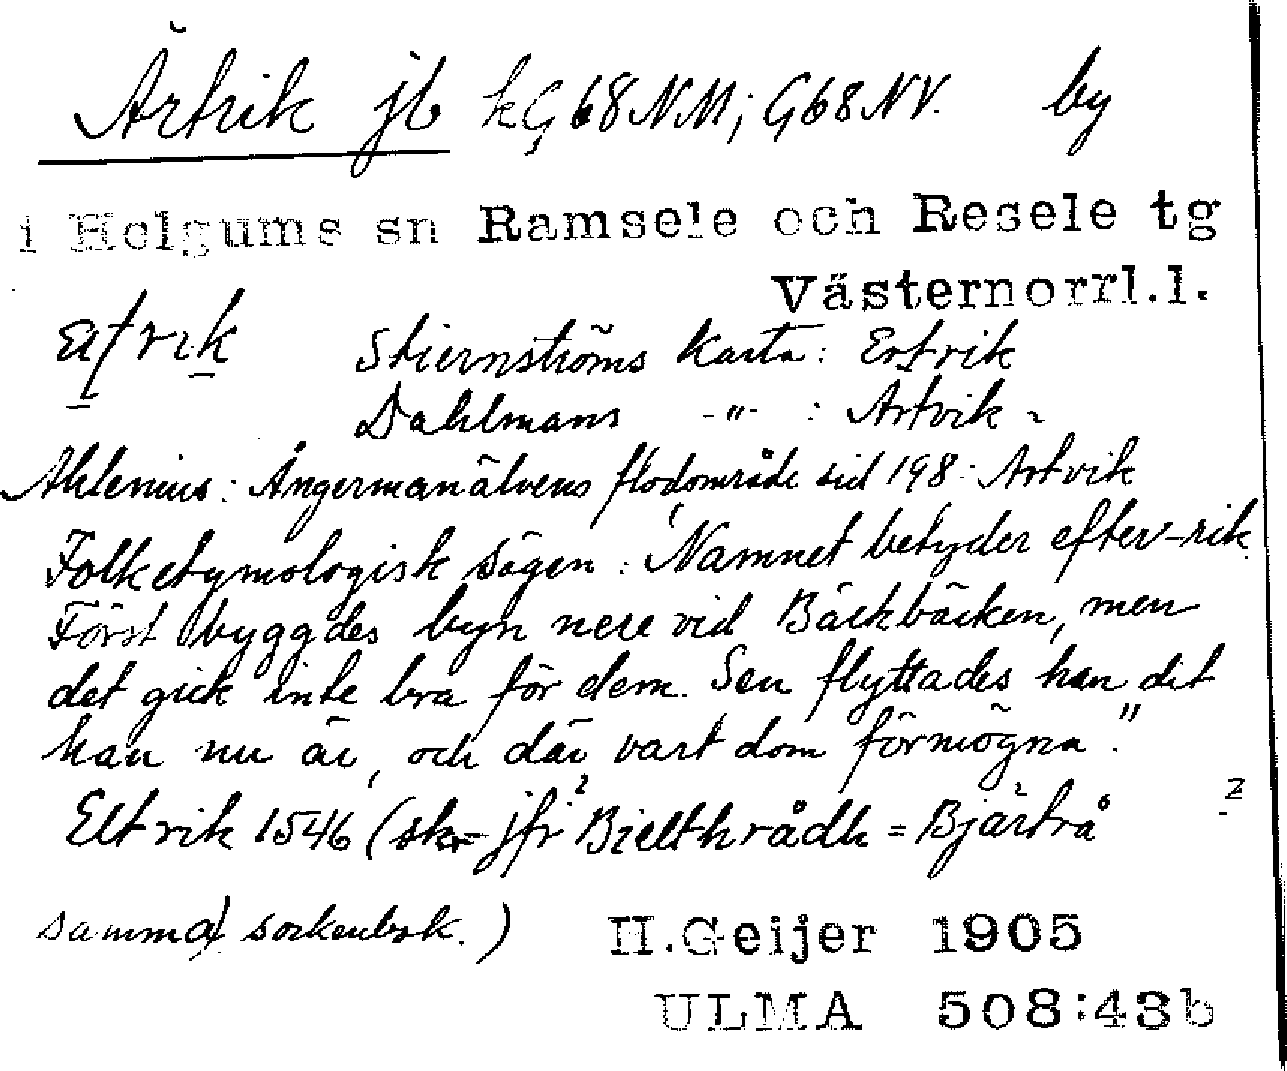 Ärtrik jb kG 68 NM; G68 NV. by
i Helgums sn Ramsele och Resele tg
Västernorrl.l.
Stiernströms Karta: Ertrik
Dahlmans -"- : Artvik
Ahlenius: Ångermanälvens flodområde sid 198: Artvik
Folketymologisk sägen: "Namnet betyder efter-rik.
Först byggdes byn nere vid Bäckbäcken, men
det gick inte bra för dem. Sen flyttades han dit
han nu är, och där vart dom förmögna."
Eltrik 1546 (skr jfr Bielthrådh = Bjärtrå
samma sockenbok.) H.Geijer 1905
ULMA 508:43b